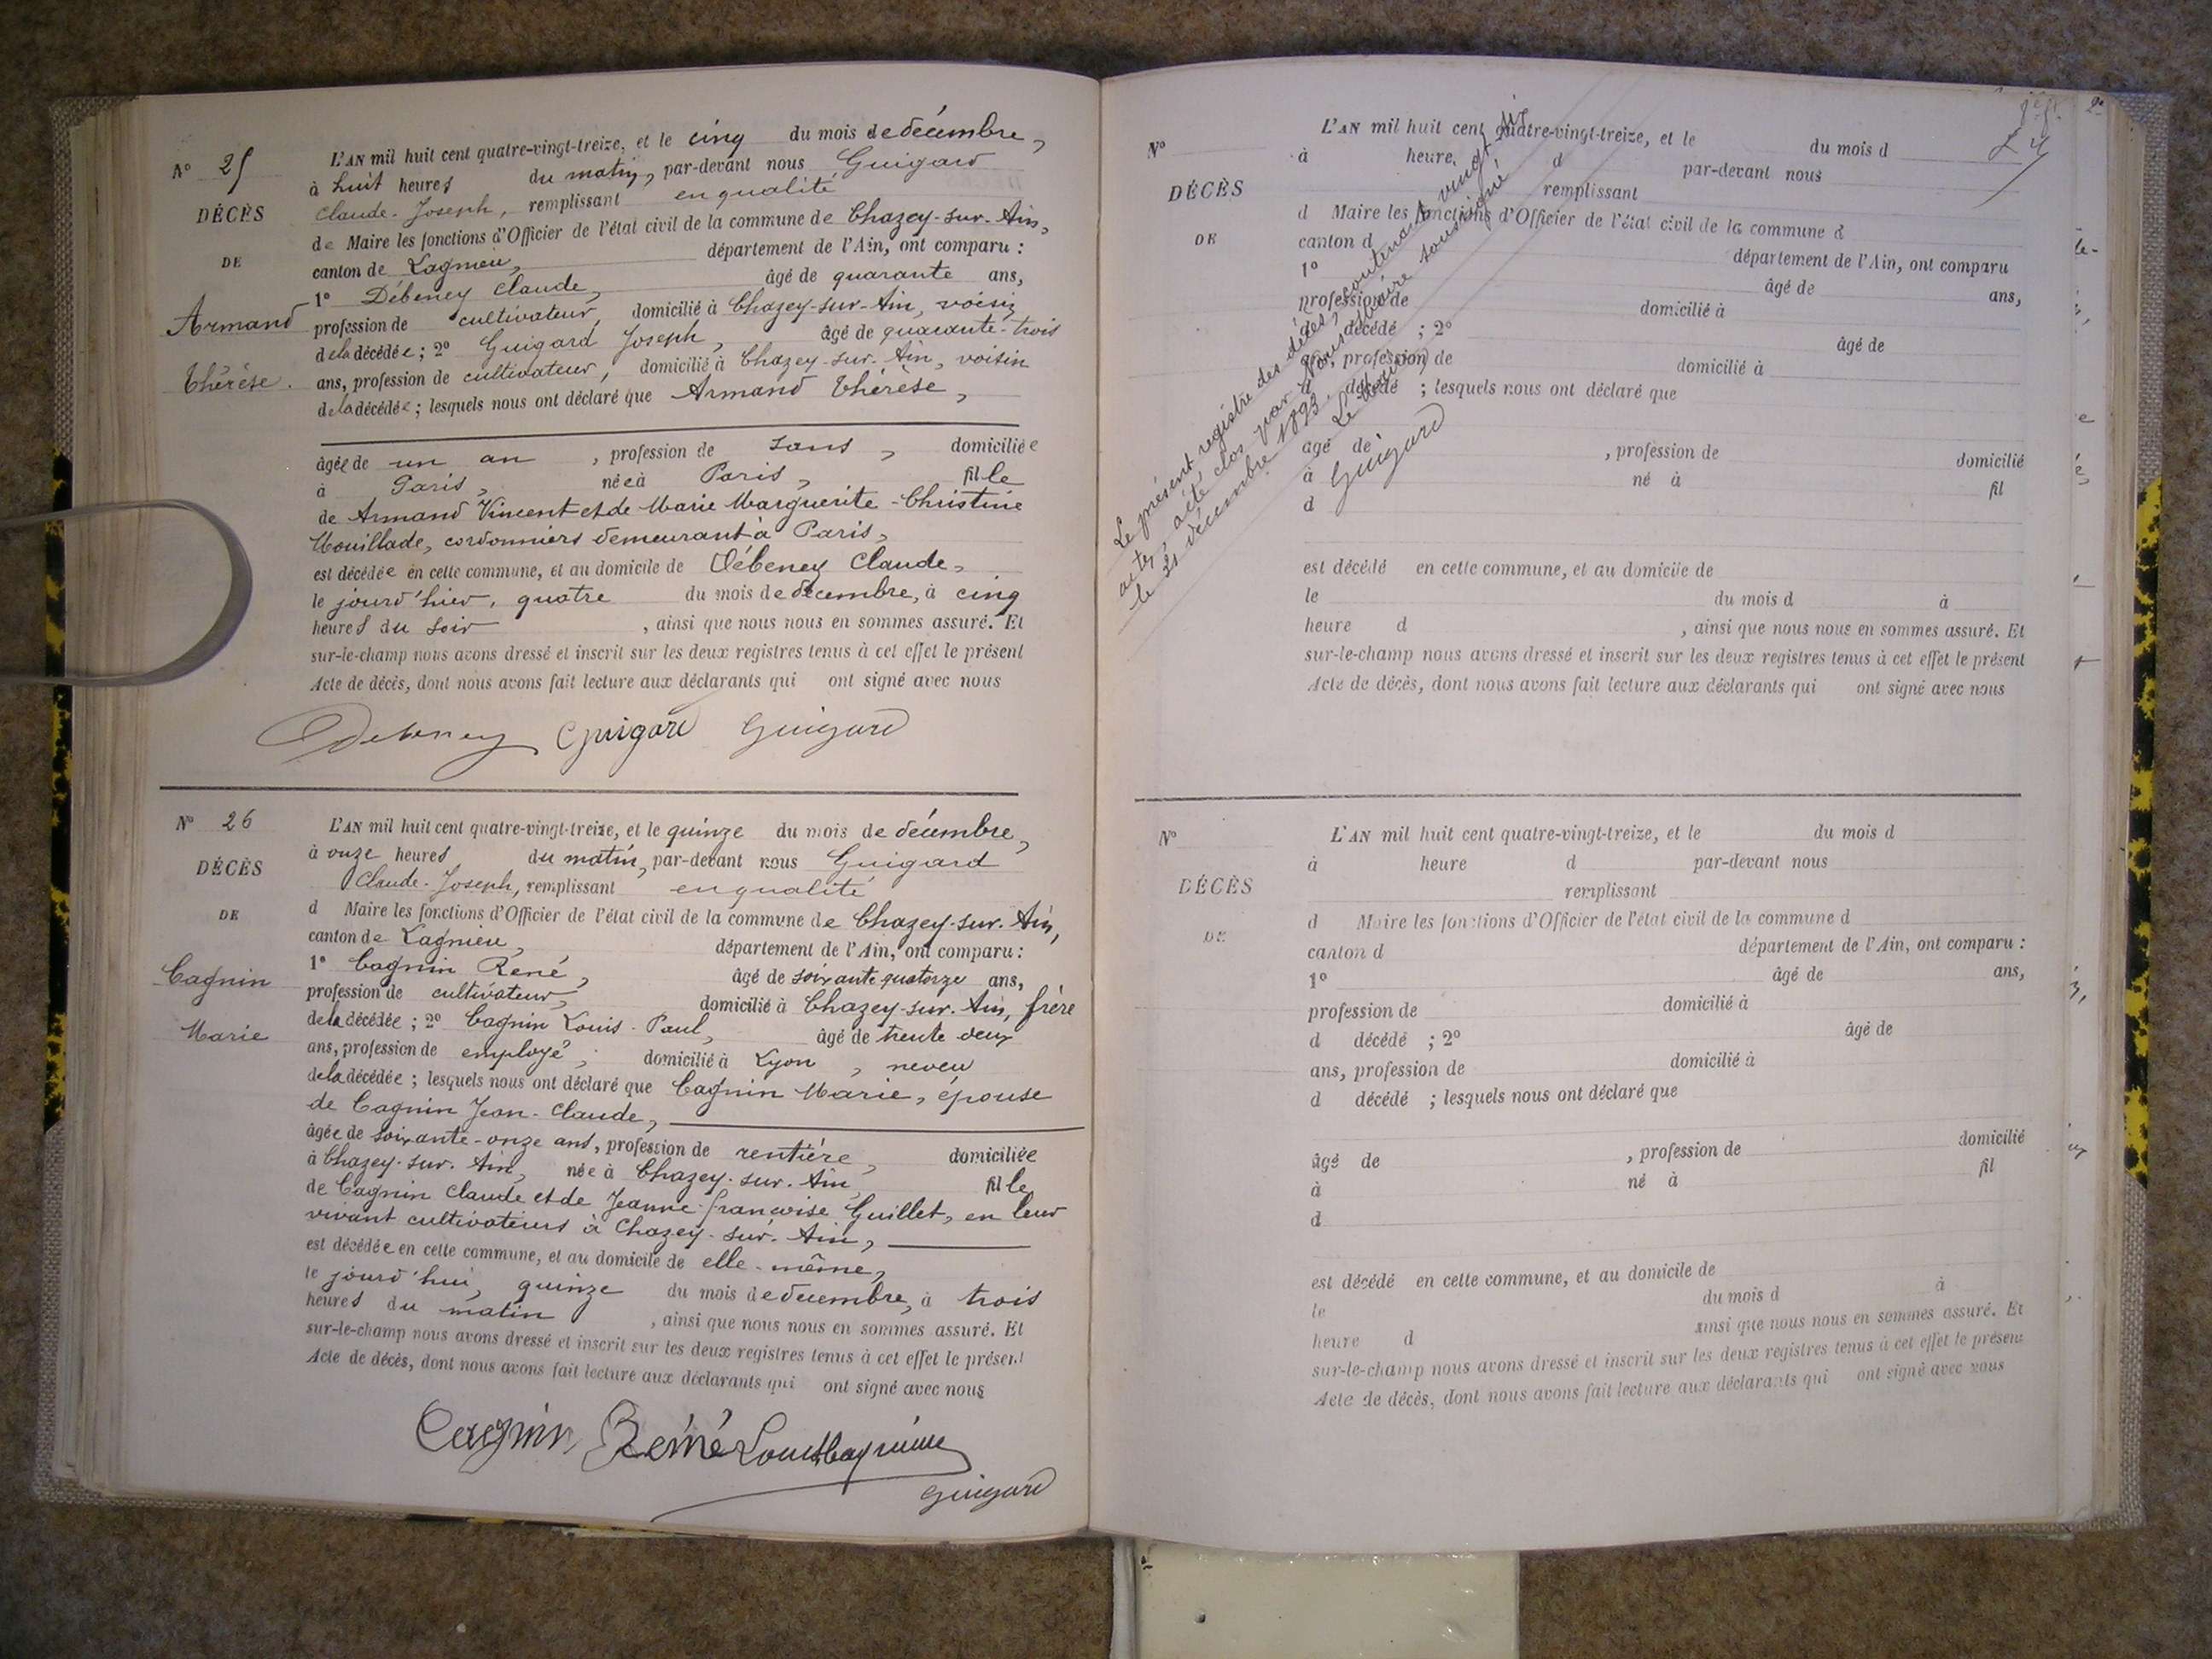 N° 25
DÉCÈS
DE
Armand
Thérèse.
L'AN mil huit cent quatre-vingt-treize, et le cinq du mois de décembre,
à huit heures du matin, par-devant nous Guigard
Claude-Joseph, remplissant en qualité
de Maire les fonctions d'Officier de l'état civil de la commune de Chazey-sur-Ain,
canton de Lagnieu, département de l'Ain, ont comparu :
1° Débeney Claude, âgé de quarante ans,
profession de cultivateur, domicilié à Chazey-sur-Ain, voisin
de la décédée ; 2° Guigard Joseph, âgé de quarante-trois
ans, profession de cultivateur, domicilié à Chazey-sur-Ain, voisin
de la décédée ; lesquels nous ont déclaré que Armand Thérèse,
âgée de un an, profession de sans, domiciliée
à Paris, née à Paris, fille
de Armand Vincent et de Marie Marguerite-Christine
Mouillade, cordonniers demeurant à Paris,
est décédée en cette commune, et au domicile de Débeney Claude,
le jourd'hier, quatre du mois de décembre, à cinq
heures du soir, ainsi que nous nous en sommes assuré. Et
sur-le-champ nous avons dressé et inscrit sur les deux registres tenus à cet effet le présent
Acte de décès, dont nous avons fait lecture aux déclarants qui ont signé avec nous
Debeney Guigard Guigard
N° 26
DÉCÈS
DE
Cagnin
Marie
L'AN mil huit cent quatre-vingt-treize, et le quinze du mois de décembre,
à onze heures du matin, par-devant nous Guigard
Claude-Joseph, remplissant en qualité
d Maire les fonctions d'Officier de l'état civil de la commune de Chazey-sur-Ain,
canton de Lagnieu, département de l'Ain, ont comparu :
1° Cagnin René, âgé de soixante quatorze ans,
profession de cultivateur, domicilié à Chazey-sur-Ain, frère
de la décédée ; 2° Cagnin Louis-Paul, âgé de trente deux
ans, profession de employé, domicilié à Lyon, neveu
de la décédée ; lesquels nous ont déclaré que Cagnin Marie, épouse
de Cagnin Jean-Claude,
âgée de soixante-onze ans, profession de rentière, domiciliée
à Chazey-sur-Ain, née à Chazey-sur-Ain fille
de Cagnin Claude et de Jeanne-françoise Guillet, en leur
vivant cultivateurs à Chazey-sur-Ain,
est décédée en cette commune, et au domicile de elle-même,
le jourd'hui, quinze du mois de décembre, à trois
heures du matin, ainsi que nous nous en sommes assuré. Et
sur-le-champ nous avons dressé et inscrit sur les deux registres tenus à cet effet le présent
Acte de décès, dont nous avons fait lecture aux déclarants qui ont signé avec nous
Cagnin René Louis Cagnin
Guigard
N°
DÉCÈS
DE
L'AN mil huit cent quatre-vingt-treize, et le du mois d
à heure d par-devant nous
remplissant
d Maire les fonctions d'Officier de l'état civil de la commune d
canton d département de l'Ain, ont comparu
1° âgé de ans,
profession de domicilié à
d décédé ; 2° âgé de
ans, profession de domicilié à
d décédé ; lesquels nous ont déclaré que
âgé de , profession de domicilié
à né à fil
d
est décédé en cette commune, et au domicile de
le du mois d à
heure d , ainsi que nous nous en sommes assuré. Et
sur-le-champ nous avons dressé et inscrit sur les deux registres tenus à cet effet le présent
Acte de décès, dont nous avons fait lecture aux déclarants qui ont signé avec nous
Le présent registre des décès, contenant vingt six
actes, a été clos par Nous Maire soussigné
le 31 décembre 1893. Le Maire
Guigard
N°
DÉCÈS
DE
L'AN mil huit cent quatre-vingt-treize, et le du mois d
à heure d par-devant nous
remplissant
d Maire les fonctions d'Officier de l'état civil de la commune d
canton d département de l'Ain, ont comparu :
1° âgé de ans,
profession de domicilié à
d décédé ; 2° âgé de
ans, profession de domicilié à
d décédé ; lesquels nous ont déclaré que
âgé de , profession de domicilié
à né à fil
d
est décédé en cette commune, et au domicile de
le du mois d à
heure d ainsi que nous nous en sommes assuré. Et
sur-le-champ nous avons dressé et inscrit sur les deux registres tenus à cet effet le présent
Acte de décès, dont nous avons fait lecture aux déclarants qui ont signé avec nous